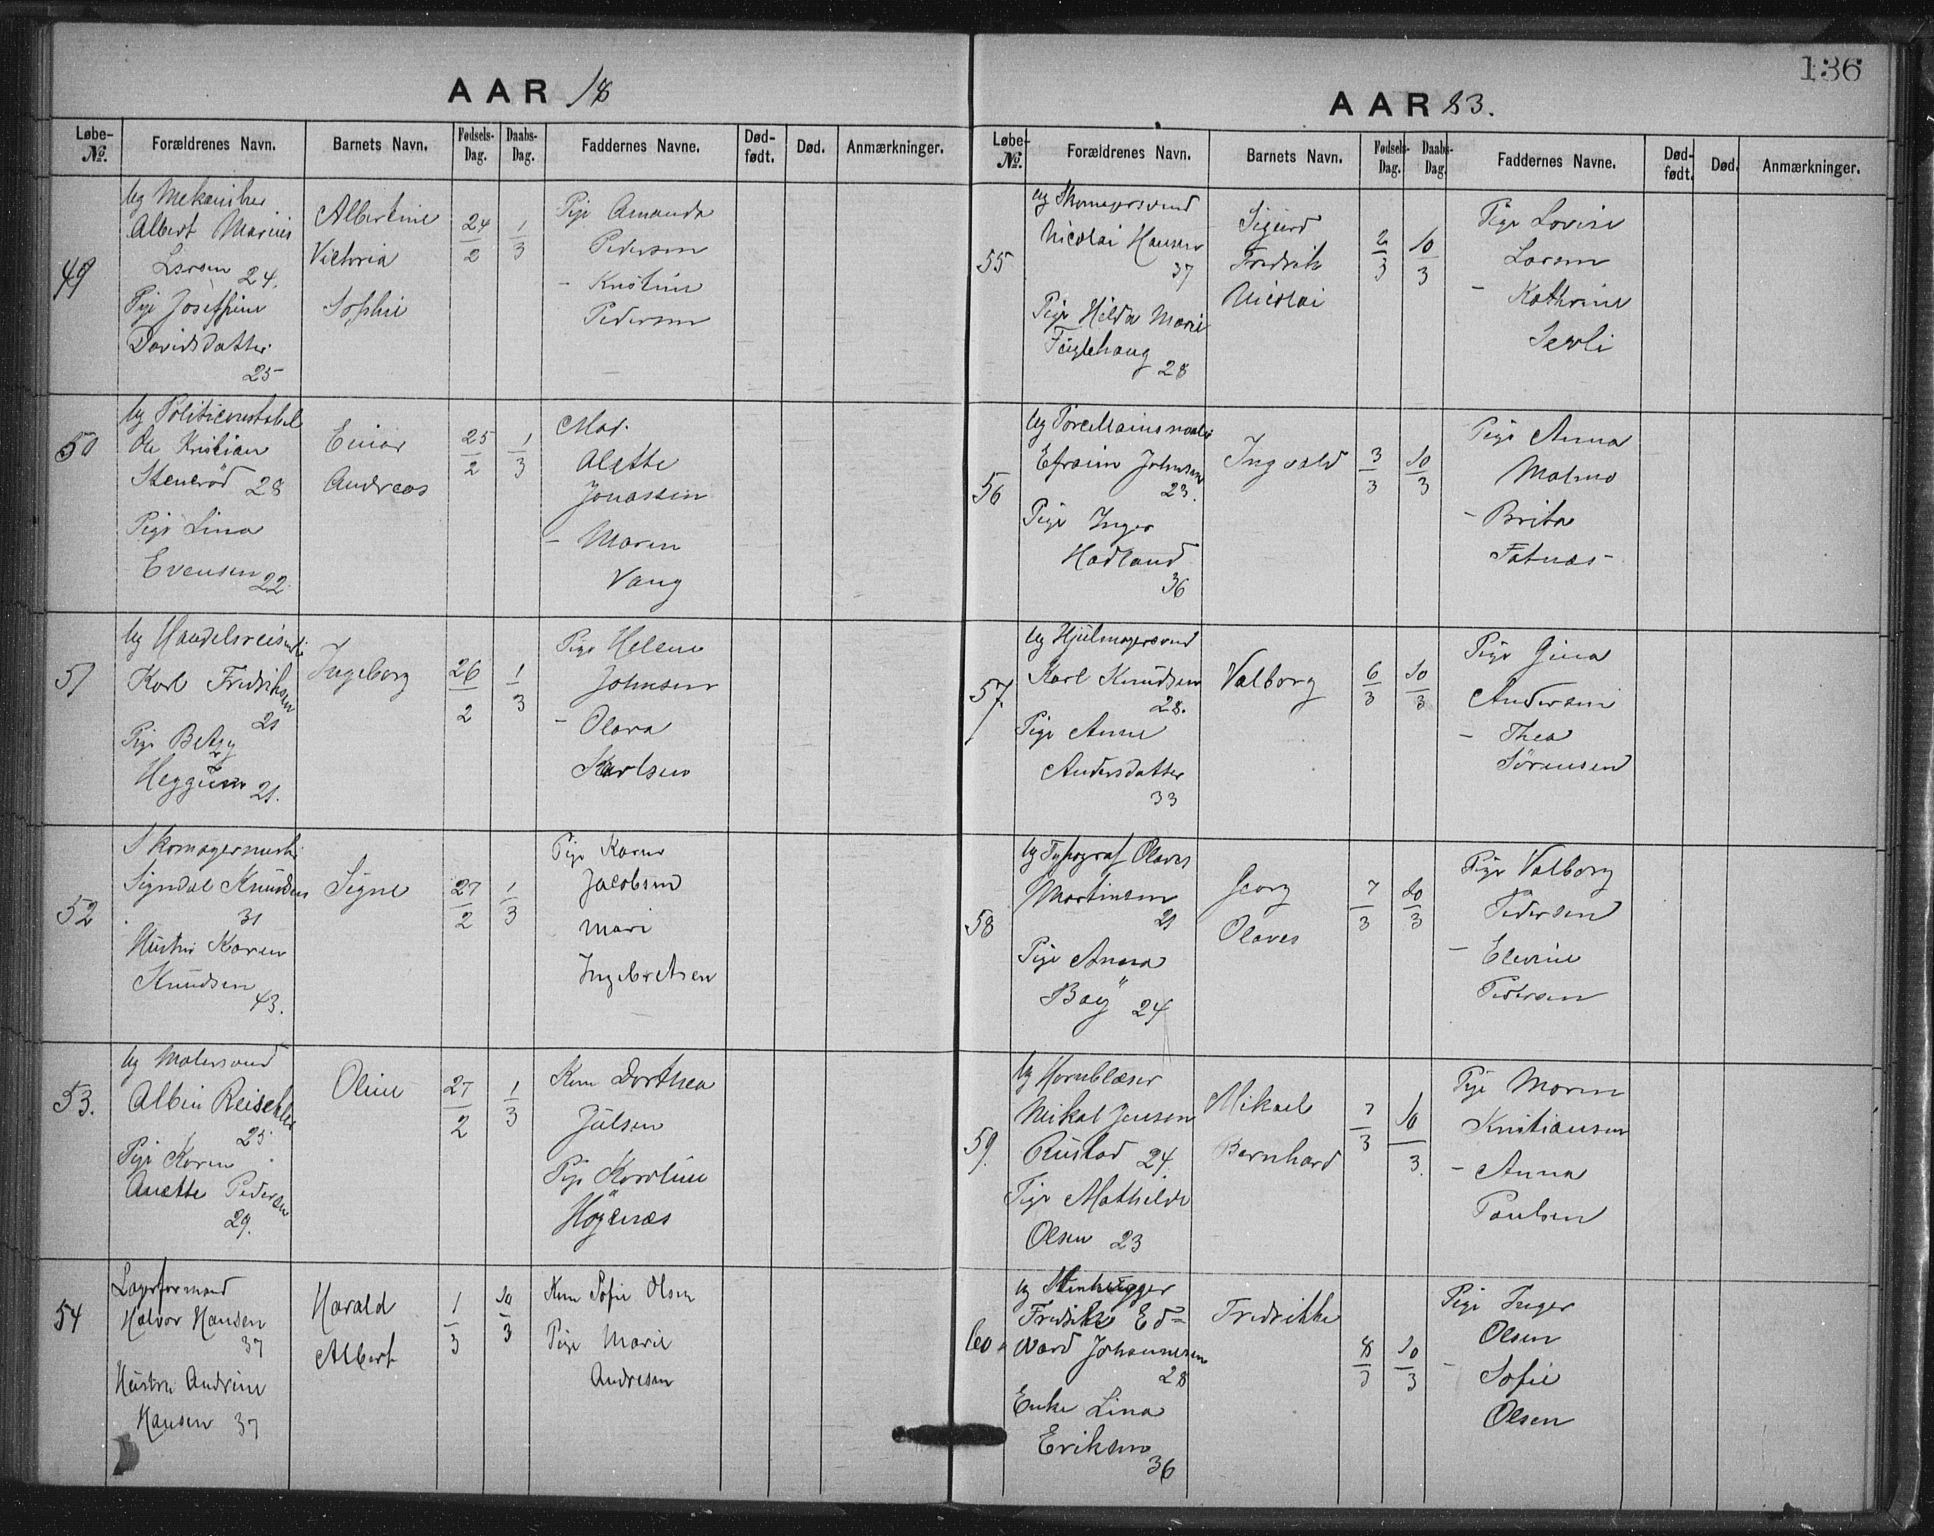 136
AAR 18
AAR 83.
Løbe-№. Forældrenes Navn. Barnets Navn. Fødsels-Dag. Daabs-Dag. Faddernes Navne. Død-født. Død. Anmærkninger.
49
Ug Mekaniker
Albert Marius
Larsen 24.
Pige Josephine
Davidsdatter
25
Albertine
Victoria
Sophie
24/2
1/3
Pige Amanda
Pedersen
- Kristine
Pedersen
50
Ug Politiconstabel
Ole Kristian
Stenerød 28
Pige Lina
Evensen 22
Einar
Andreas
25/2
1/3
Mad.
Alette
Jonassen
- Maren
Vang
51
Ug Handelsreisende
Karl Fredriksen
21
Pige Betzy
Heggum 21.
Ingeborg
26/2
1/3
Pige Helene
Johnsen
- Olava
Karlsen
52
Skomagermester
Signdal Knudsen
31
Hustru Karen
Knudsen
43.
Signe
27/2
1/3
Pige Karen
Jacobsen
Mari
Ingebretsen
53.
Ug Malersvend
Albin
25.
Pige Karen
Anette Pedersen
29.
Oline
27/2
1/3
Kone Dorthea
Julsen
Pige Karoline
Høgenæs
54
Lagerformand
Halvor Hansen
37
Hustru Andrine
Hansen 37
Harald
Albert
1/3
10/3
Kone Sofie Olsen
Pige Marie
Andresen
Løbe-№. Forældrenes Navn. Barnets Navn. Fødsels-Dag. Daabs-Dag. Faddernes Navne. Død-født. Død. Anmærkninger.
55
Ug Skomagersvend
Nicolai Hansen
37
Pige Hilda Marie
Fuglehaug 28
Sigurd
Fredrik
Nicolai
2/3
10/3
Pige Lovise
Larsen
- Kathrine
56
Ug Porcellainsmaler
Efraim Johnsen
23.
Pige Inger
Hadland
36
Ingvald
3/3
10/3
Pige Anna
Malmo
- Brita
Fatnæs
57.
Ug Hjulmagersvend
Karl Knudsen
28.
Pige Anne
Andersdatter
33
Valborg
6/3
10/3
Pige Gina
Andersen
- Thea
Sørensen
58
Ug Typograf Olaves
Martinsen
21
Pige Anna
Bay 24
Georg
Olaves
7/3
10/3
Pige Valborg
Pedersen
- Elevine
Pedersen
59.
Ug Hornblæser
Mikal Jensen
Rustad 24.
Pige Mathilde
Olsen 23
Mikael
Bernhard
7/3
10/3.
Pige Maren
Kristiansen
- Anna
Paulsen
60
Ug Stenhugger
Fredrik Ed=
vard Johannesen
28
Enke Lina
Eriksen
36
Fredrikke
8/3
10/3
Pige Inger
Olsen
- Sofie
Olsen